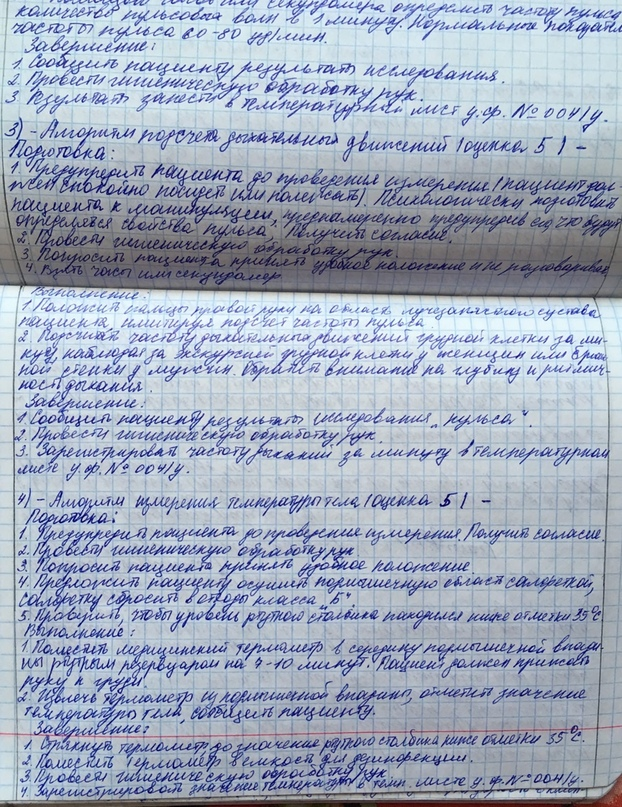 секундомера определить частоту пульса
количество пульсовых волн в 1 минуту. Нормальные показатели
частоты пульса 60-80 уд/мин.
Завершение:
1. Сообщить пациенту результаты исследования.
2. Провести гигиеническую обработку рук.
3. Результаты занести в температурный лист у.ф. №004/у.
3) - Алгоритм подсчета дыхательных движений (оценка 5) -
Подготовка:
1. Предупредить пациента до проведения измерения (пациент дол-
жен спокойно посидеть или полежать). Психологически подготовить
пациента к манипуляции, преднамеренно предупредив его, что будут
определяться свойства пульса. Получить согласие.
2. Провести гигиеническую обработку рук.
3. Попросить пациента принять удобное положение и не разговаривать
4. Взять часы или секундомер
Выполнение:
1. Положить пальцы правой руки на область лучезапястного сустава
пациента, имитируя подсчет частоты пульса
2. Подсчитать частоту дыхательных движений грудной клетки за ми-
нуту, наблюдая за экскурсией грудной клетки у женщин или брюш-
ной стенки у мужчин. Обратить внимание на глубину и ритмич-
ность дыхания.
Завершение:
1. Сообщить пациенту результаты исследования „пульса“.
2. Провести гигиеническую обработку рук.
3. Зарегистрировать частоту дыханий за минуту в температурном
листе у.ф. №004/у.
4) - Алгоритм измерения температуры тела (оценка 5) -
Подготовка:
1. Предупредить пациента до проведения измерения. Получить согласие.
2. Провести гигиеническую обработку рук
3. Попросить пациента принять удобное положение
4. Предложить пациенту осушить подмышечную область салфеткой,
салфетку сбросить в отходы класса „Б“.
5. Проверить, чтобы уровень ртутного столбика находился ниже отметки 35°С
Выполнение:
1. Поместить медицинский термометр в середину подмышечной впади-
ны ртутным резервуаром на 7-10 минут. Пациент должен прижать
руку к груди.
2. Извлечь термометр из подмышечной впадины, отметить значение
температуры тела, сообщить пациенту.
Завершение:
1. Стряхнуть термометр до значения ртутного столбика ниже отметки 35°С.
2. Поместить термометр в емкость для дезинфекции.
3. Провести гигиеническую обработку рук
4. Зарегистрировать значение температуры в темп. листе у.ф. №004/у.